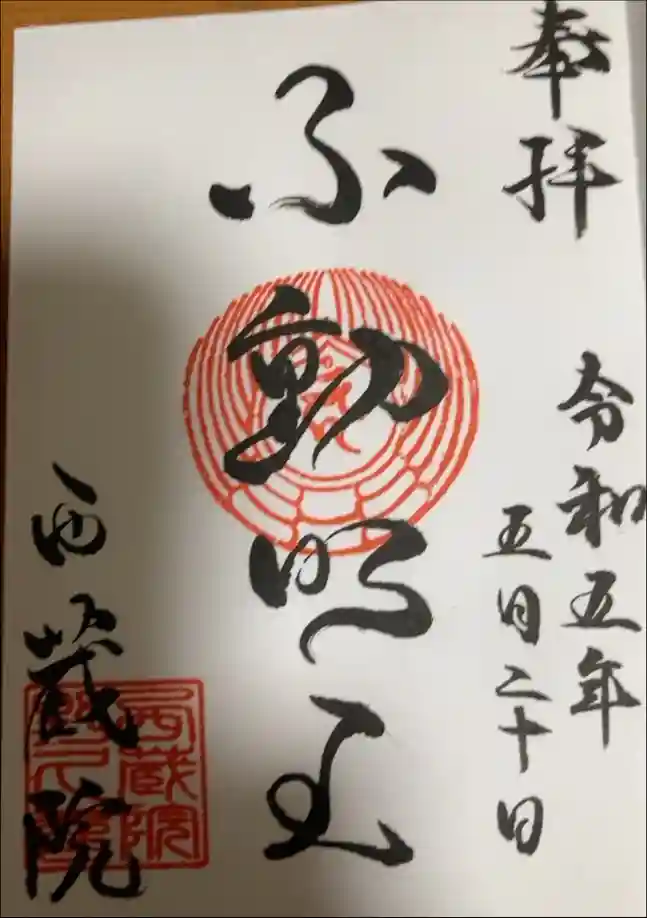 奉拝
令和五年
五月二十日
不動明王
西蔵院
西蔵院